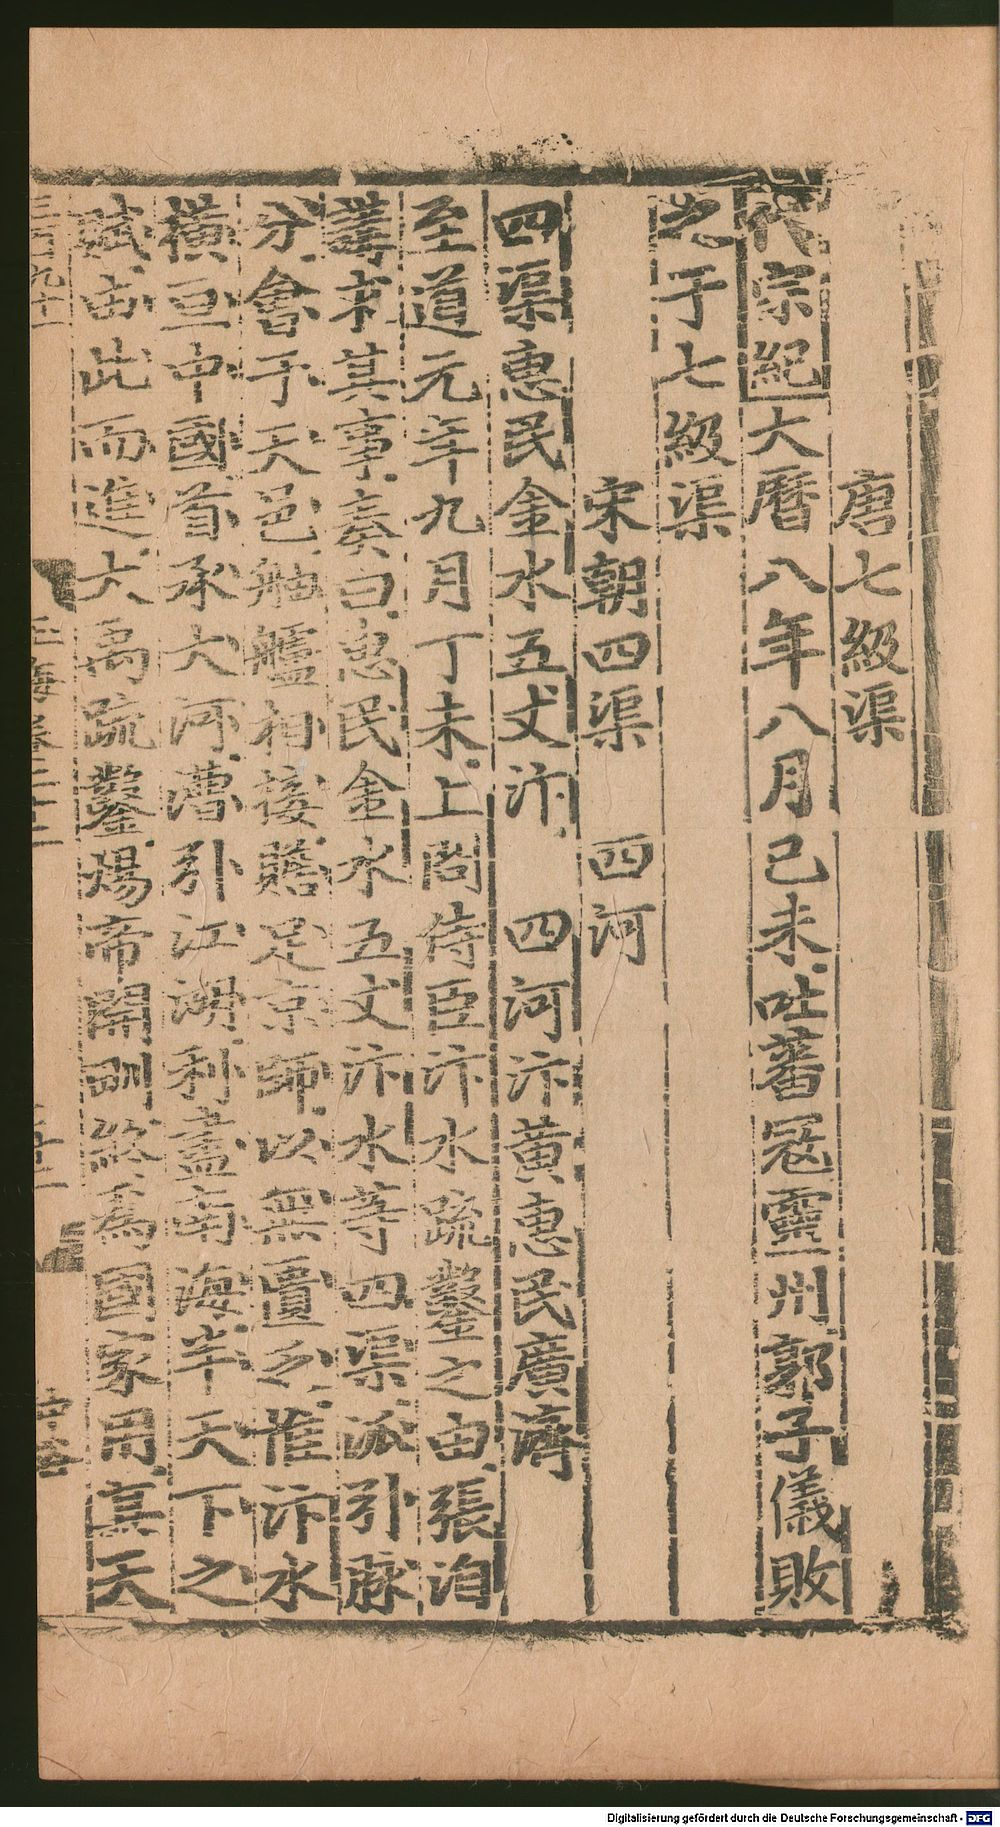 唐七級渠
代宗紀大曆八年八月己未吐蕃寇靈州郭子儀敗
之于七級渠
宋朝四渠　四河
四渠惠民金水五丈汴　四河汴黃惠民廣濟
至道元年九月丁未上問侍臣汴水疏鑿之由張洎
等求其事奏曰惠民金水五丈汴水等四渠派引脉
分會于天邑舳艫相接贍足京師以無匱乏惟汴水
橫亘中國首承大河漕引江湖利盡南海半天下之
賦由此而進大禹疏鑿煬帝開甽終為國家用真天
三百九十一
玉海卷二十二
Digitalisierung gefördert durch die Deutsche Forschungsgemeinschaft - DFG